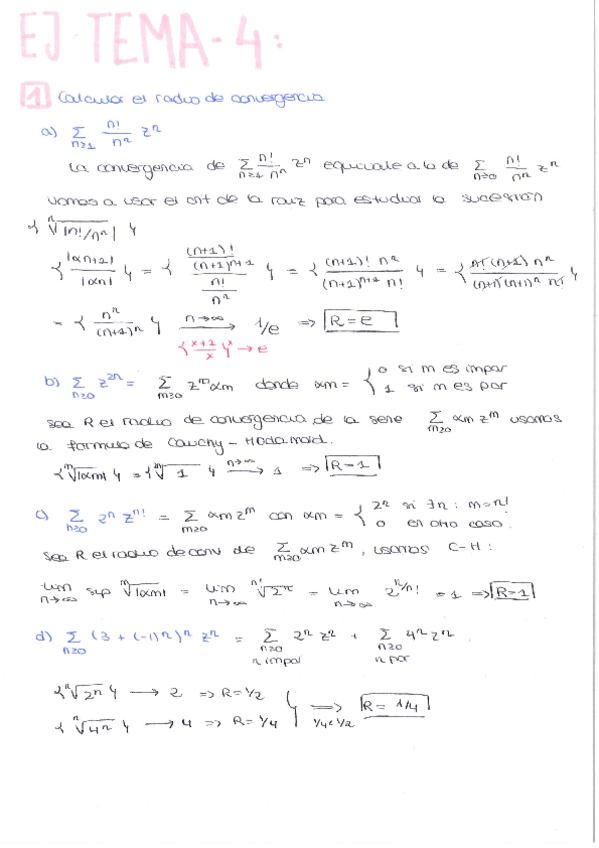 EJ. TEMA-4:
1 Calcular el radio de convergencia
a) Σ_{n≥1} n!/n^n z^n
La convergencia de Σ_{n≥1} n!/n^n z^n equivale a la de Σ_{n≥0} n!/n^n z^n
vamos a usar el crit de la raíz para estudiar la sucesión
{ ⁿ√|n!/n^n| }
{ |αn+1| / |αn| } = { ((n+1)!/(n+1)^{n+1}) / (n!/n^n) } = { (n+1)! n^n / (n+1)^{n+1} n! } = { n! (n+1) n^n / (n+1)(n+1)^n n! }
= { n^n / (n+1)^n } n→∞ → 1/e ⇒ R=e
{ (x+1/x)^x } → e
b) Σ_{n≥0} z^{2n} = Σ_{m≥0} z^m αm donde αm = { 0 si m es impar
1 si m es par
sea R el radio de convergencia de la serie Σ_{m≥0} αm z^m usamos
la formula de Cauchy-Hadamard.
{ ᵐ√|αm| } = { ᵐ√1 } n→∞ → 1 ⇒ R=1
c) Σ_{n≥0} 2^n z^{n!} = Σ_{m≥0} αm z^m con αm = { 2^n si ∃n: m=n!
0 en otro caso.
sea R el radio de conv de Σ_{m≥0} αm z^m, usamos C-H:
lim_{n→∞} sup ᵐ√|αm| = lim_{n→∞} ⁿ!√2^n = lim_{n→∞} 2^{n/n!} = 1 ⇒ R=1
d) Σ_{n≥0} (3+(-1)^n)^n z^n = Σ_{n≥0 n impar} 2^n z^n + Σ_{n≥0 n par} 4^n z^n
{ ⁿ√2^n } → 2 ⇒ R=1/2
{ ⁿ√4^n } → 4 ⇒ R=1/4 } ⇒ 1/4<1/2 R=1/4